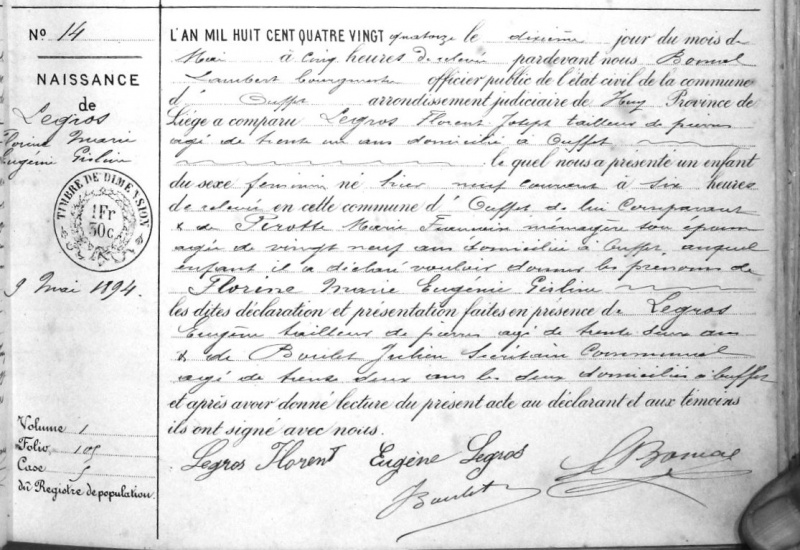 N° 14
NAISSANCE
de
Legros
Florine Marie
Eugenie Gisline
TIMBRE DE DIMENSION
1Fr
30c.
9 Mai 1894.
Volume 1
Folio 105
Case 5
du Registre de population.
L'AN MIL HUIT CENT QUATRE VINGT quatorze le dixième jour du mois de
Mai à cinq heures de relevée pardevant nous Bonmal
Lambert bourgmestre officier public de l'état civil de la commune
d' Ouffet arrondissement judiciaire de Huy Province de
Liége a comparu Legros Florent Joseph tailleur de pierres
agé de trente un ans domicilié à Ouffet
le quel nous a présenté un enfant
du sexe feminin né hier neuf courant à six heures
de relevée en cette commune d' Ouffet de lui Comparant
& de Pirotte Marie ménagère son épouse
agée de vingt neuf ans domiciliée à Ouffet, auquel
enfant il a déclaré vouloir donner les prénoms de
Florine Marie Eugenie Gisline
les dites déclaration et présentation faites en présence de Legros
Eugène tailleur de pierres agé de trente deux ans
& de Boulet Julien Secrétaire Communal
agé de trente deux ans les deux domiciliés à Ouffet
et après avoir donné lecture du présent acte au déclarant et aux témoins
ils ont signé avec nous.
Legros Florent Eugène Legros L Bonmal
J Boulet